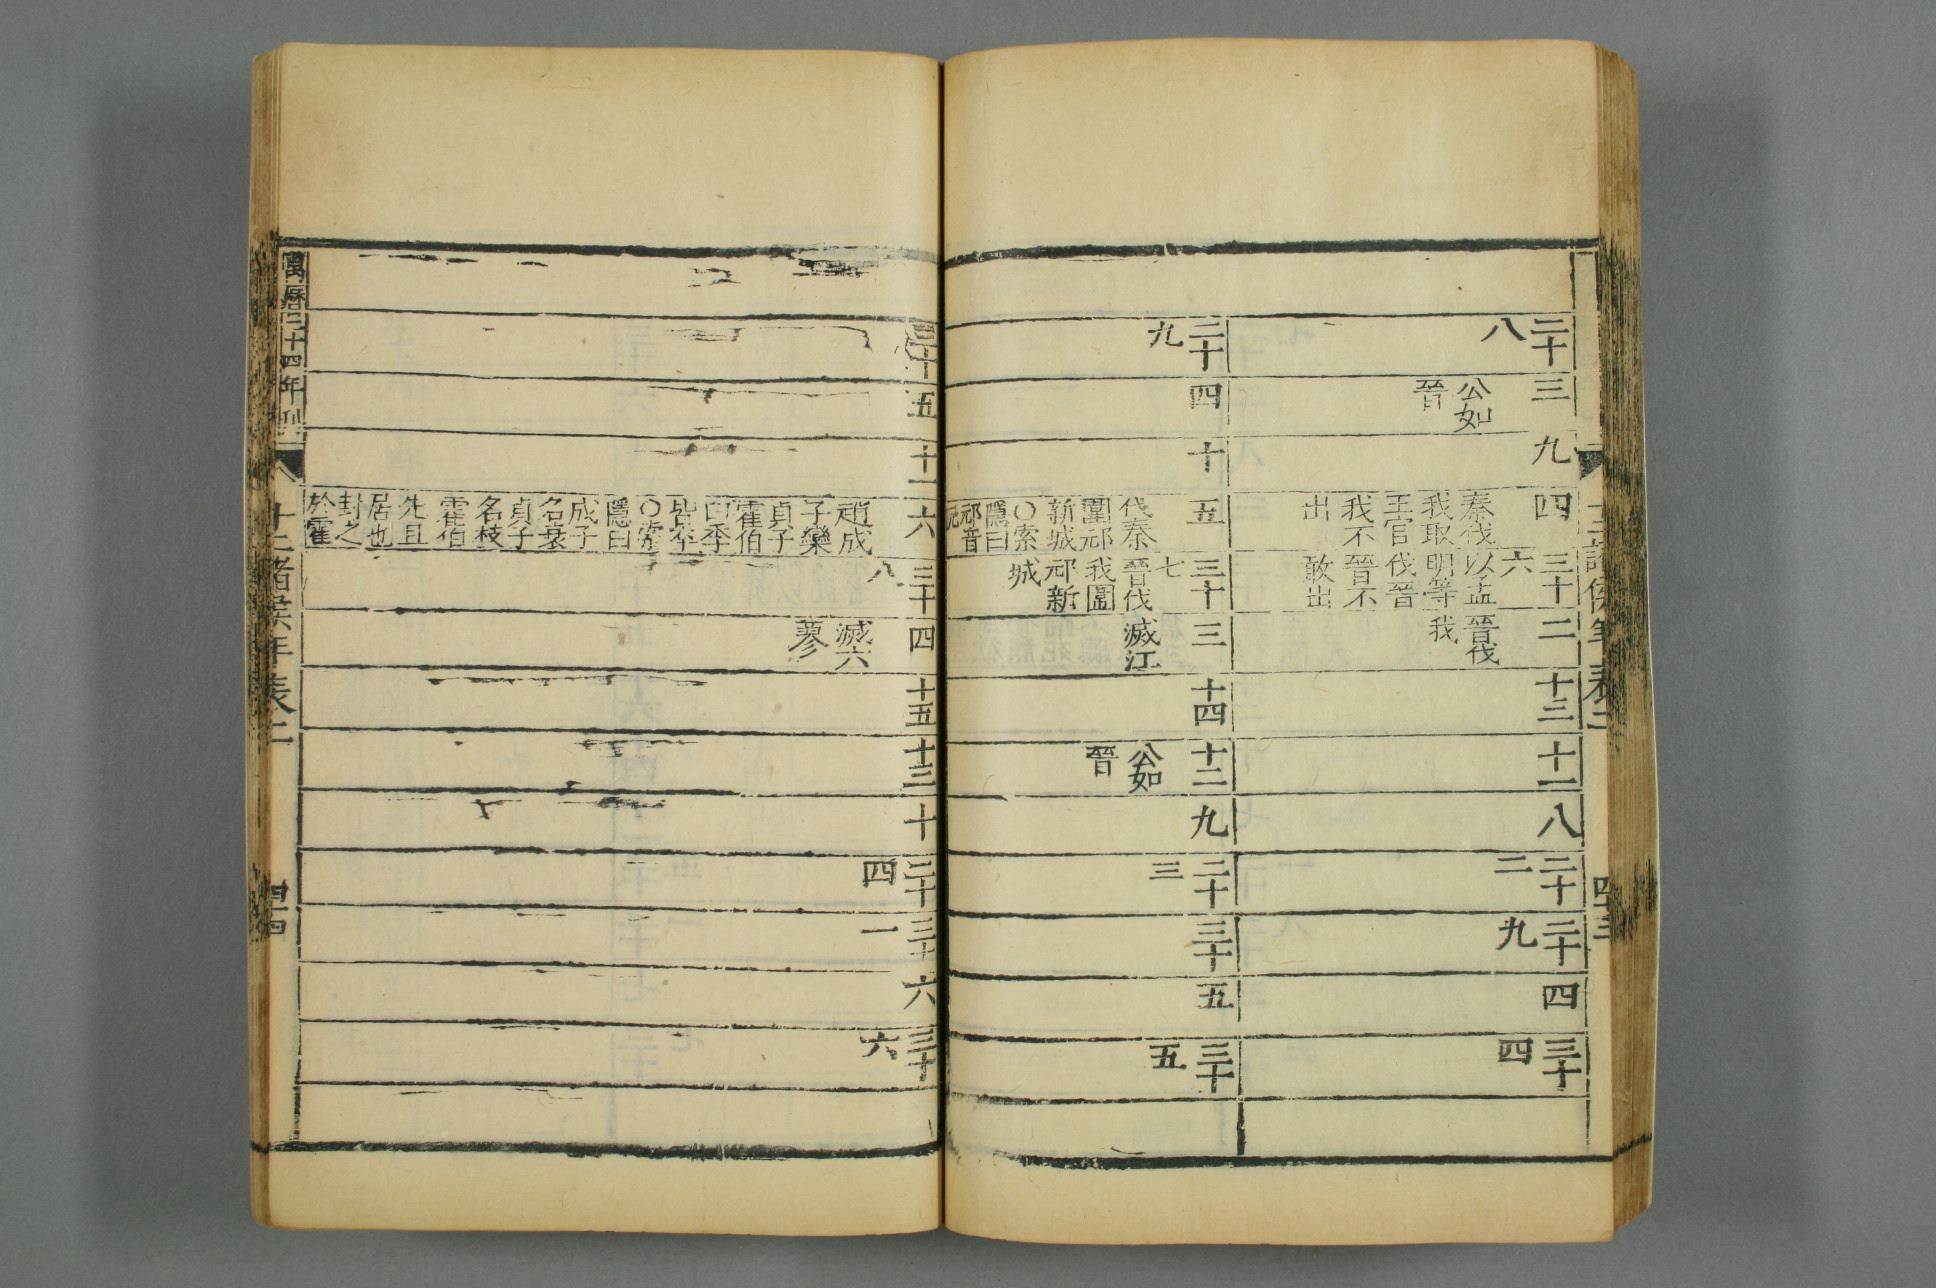 十二諸侯年表二
四十三
二十
八
三
公如
晉
九
四
秦伐
我取
王官
我不
出
三十
六
以孟
明等
伐晉
晉不
敢出
二
晉伐
我
十三
十一
八
二十
二
二十
九
四
三十
四
二十
九
四
十
五
伐秦
圍祁
新城
○索
隱曰
祁音
元
三十
七
晉伐
我圍
祁新
城
三
滅江
十四
十二
公如
晉
九
二十
三
三十
五
三十
五
三十
五
十一
六
趙成
子欒
貞子
霍伯
臼季
皆卒
○索
隱曰
成子
名衰
貞子
名枝
霍伯
先且
居也
封之
於霍
三十
八
四
滅六
蓼
十五
十三
十
二十
四
三十
一
六
三十
六
萬曆二十四年刊
十二諸侯年表二
四十四